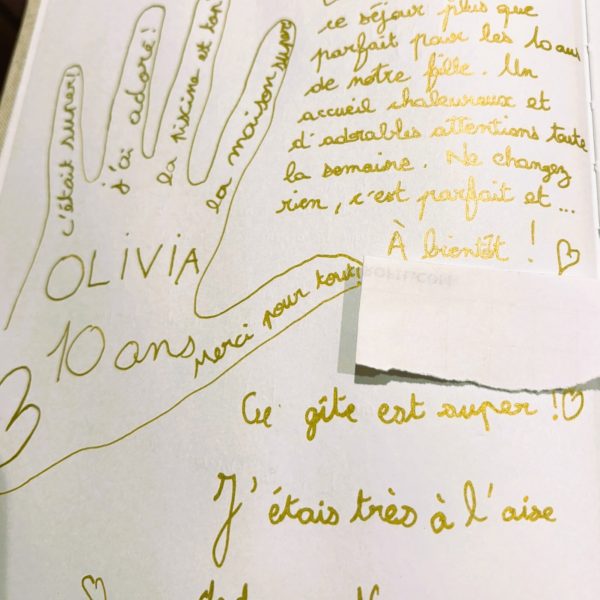 c'était super!
j'ai adoré!
la piscine et
la maison super
Merci pour tout!
OLIVIA
10 ans
ce séjour plus que
parfait pour les 10 ans
de notre fille. Un
accueil chaleureux et
d'adorables attentions toute
la semaine. Ne changez
rien, c'est parfait et ...
À bientôt !
Ce gîte est super !
J'étais très à l'aise